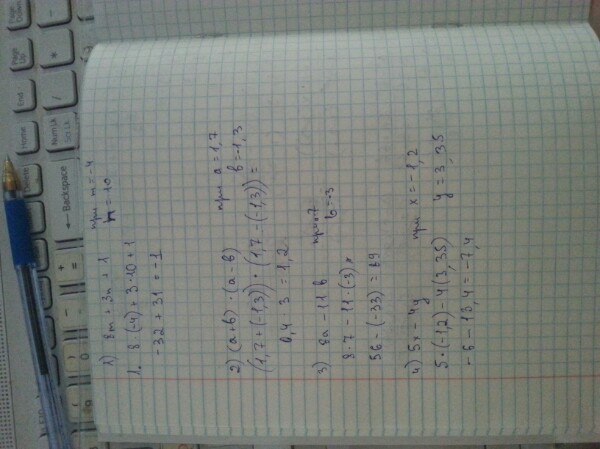 1) 8m + 3n + 1 при m = -4
n = 10
1. 8(-4) + 3·10 + 1
-32 + 31 = -1
2) (a+b)·(a-b) при a = 1,7
b = -1,3
(1,7 + (-1,3))·(1,7 - (-1,3)) =
0,4 3 = 1,2
3) 8a - 11b при a=7
b=-3
8·7 - 11·(-3)
56 - (-33) = 89
4) 5x - 4y при x = -1,2
y = 3,35
5·(-1,2) - 4(3,35)
-6 - 13,4 = -7,4
Page Down
Page Up
End
Home
Num Lk
Scr Lk
Delete
Backspace
*
/
+
=